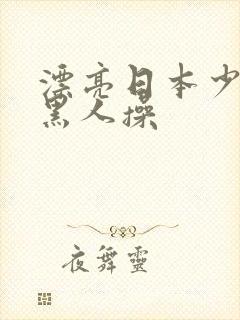 漂亮日本少
黑人操
夜舞靈